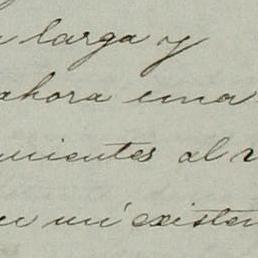 larga y
ahora una
mientos al
en mi existen